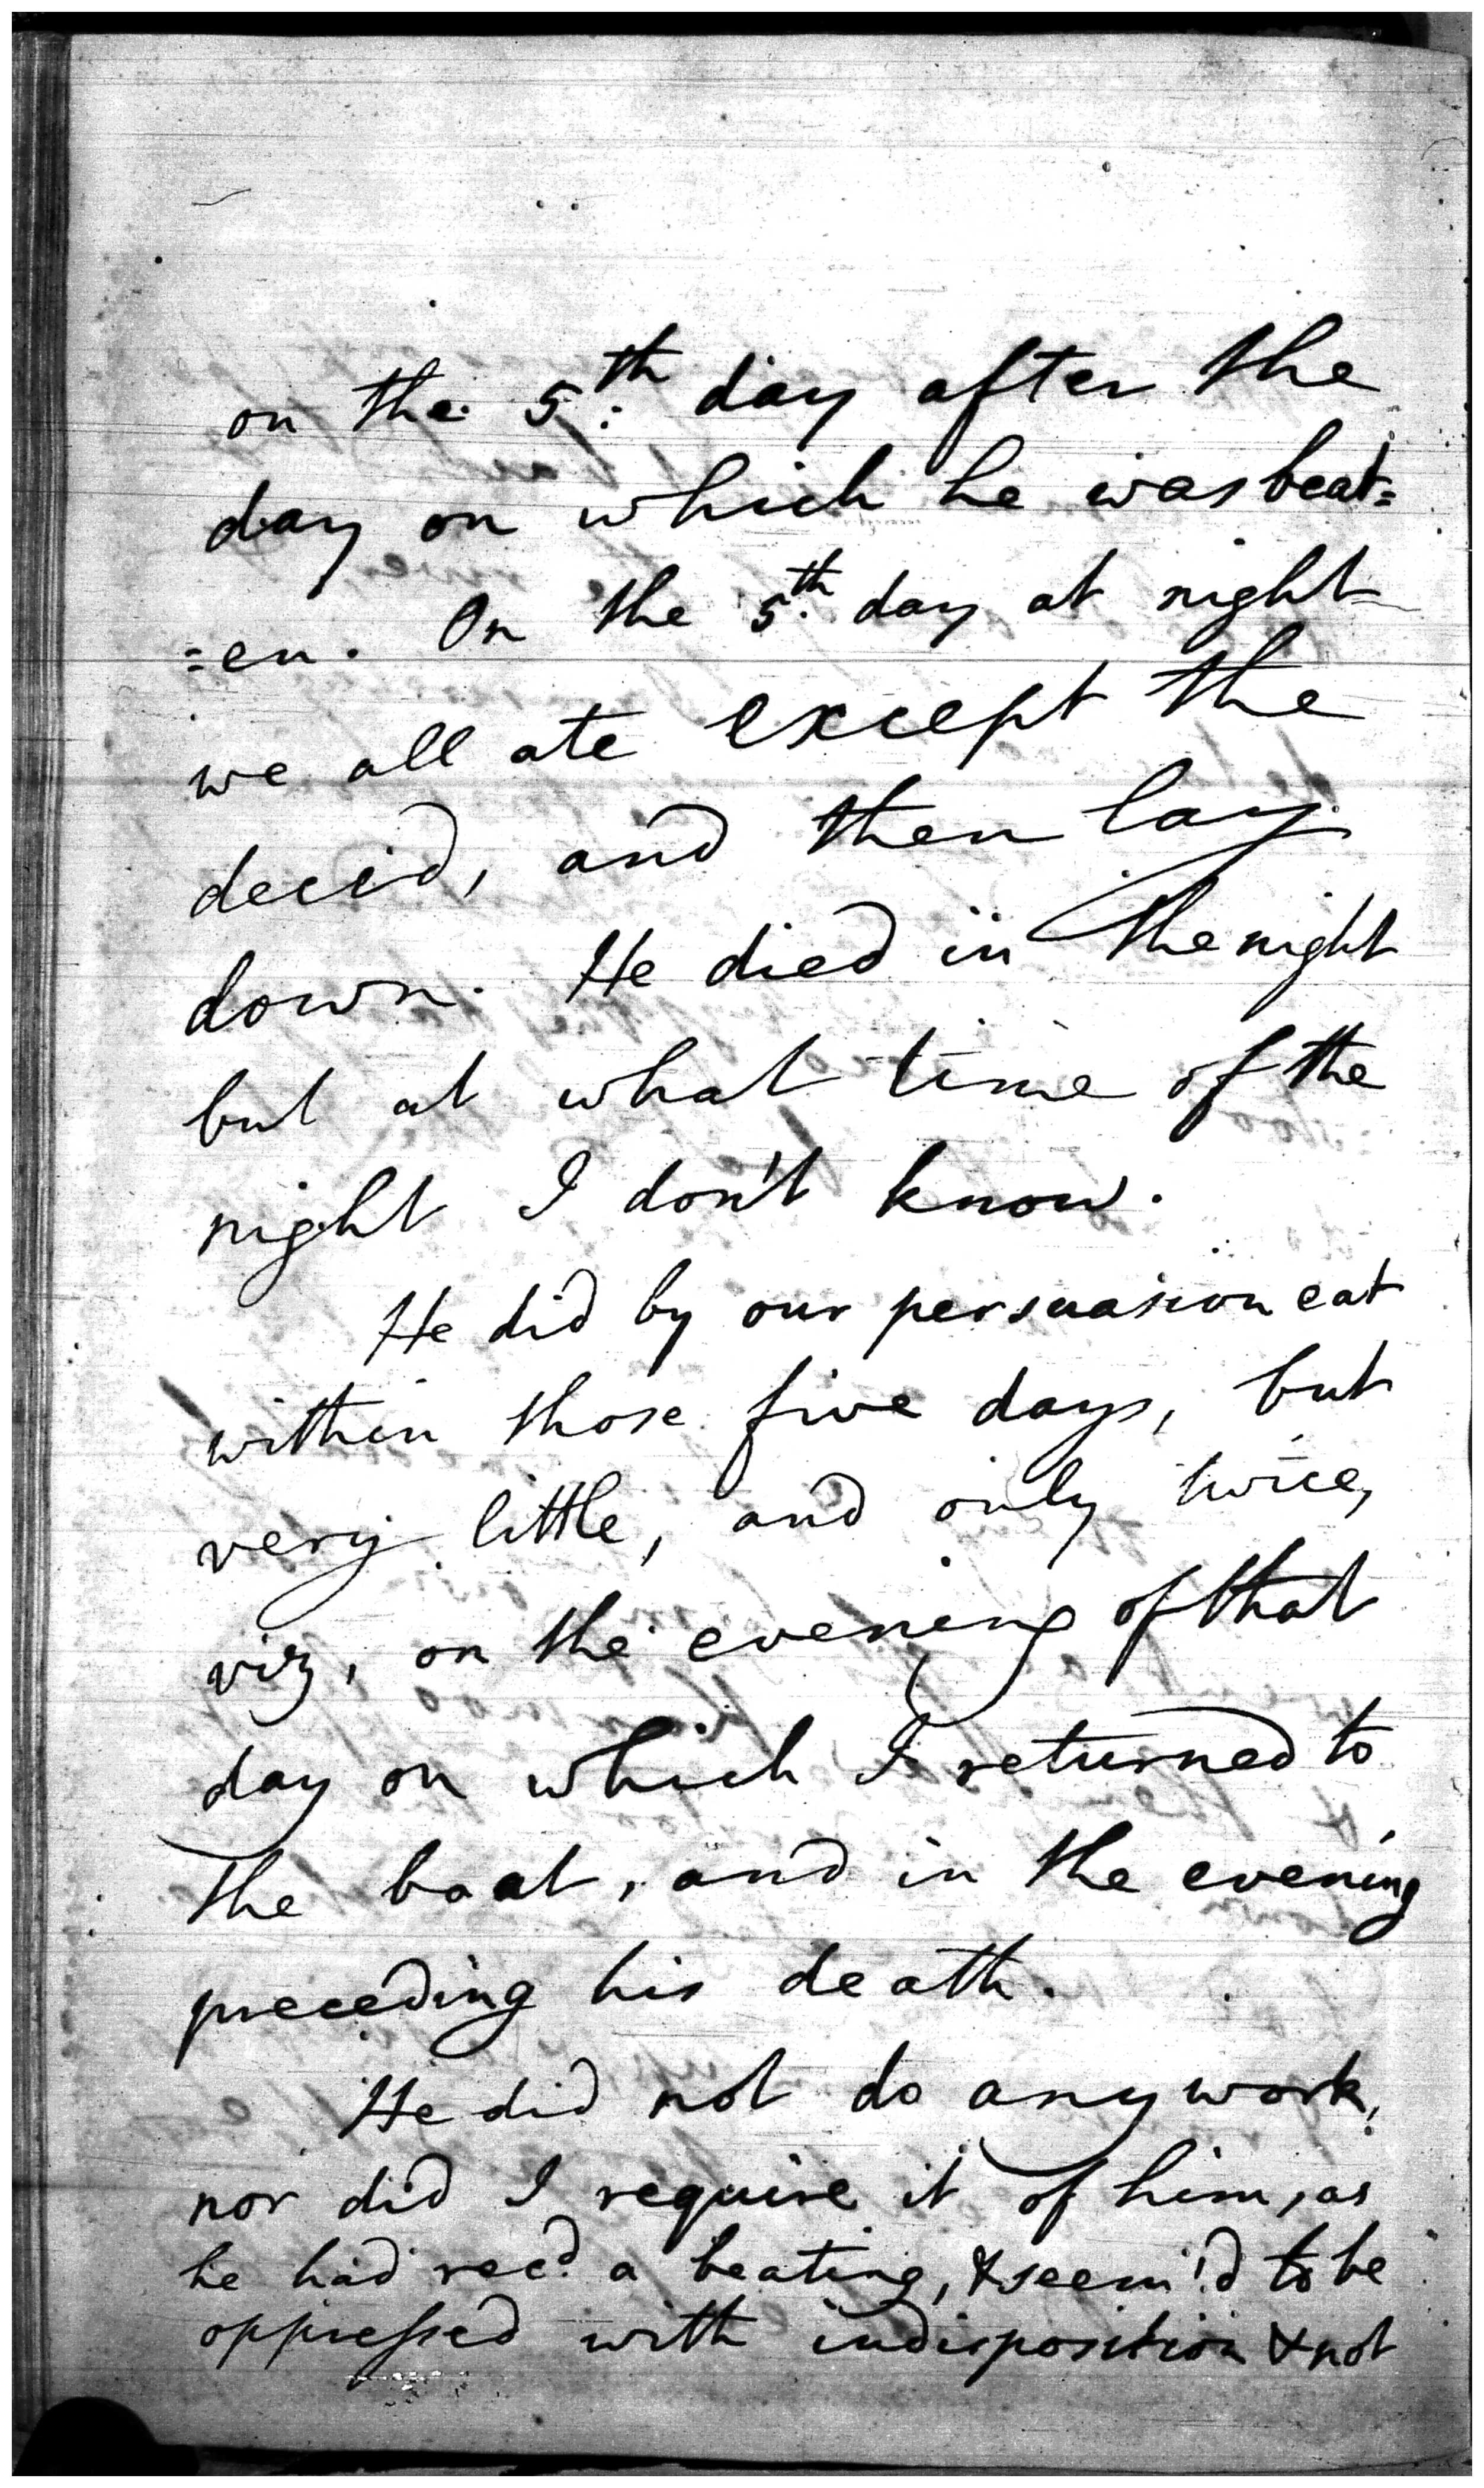 on the 5.th day after the
day on which he was beat=
=en. On the 5.th day at night
we all ate except the
dece'd, and then lay
down. He died in the night
but at what time of the
night I don't know.
He did by our persuasion eat
within those five days, but
very little, and only twice,
viz, on the evening of that
day on which I returned to
the boat, and in the evening
preceding his death.
He did not do any work,
nor did I require it of him, as
he had rec.d a beating, & seem'd to be
oppressed with indisposition & not